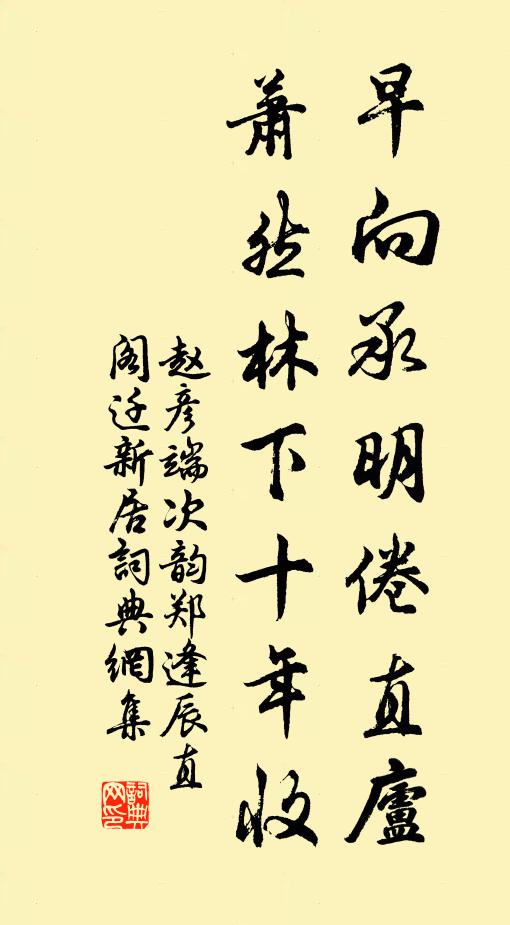 早向承明倦直廬
蕭然林下十年收
赵彦端次韵郑逢辰直
阁迁新居詞典網集
詞典网印